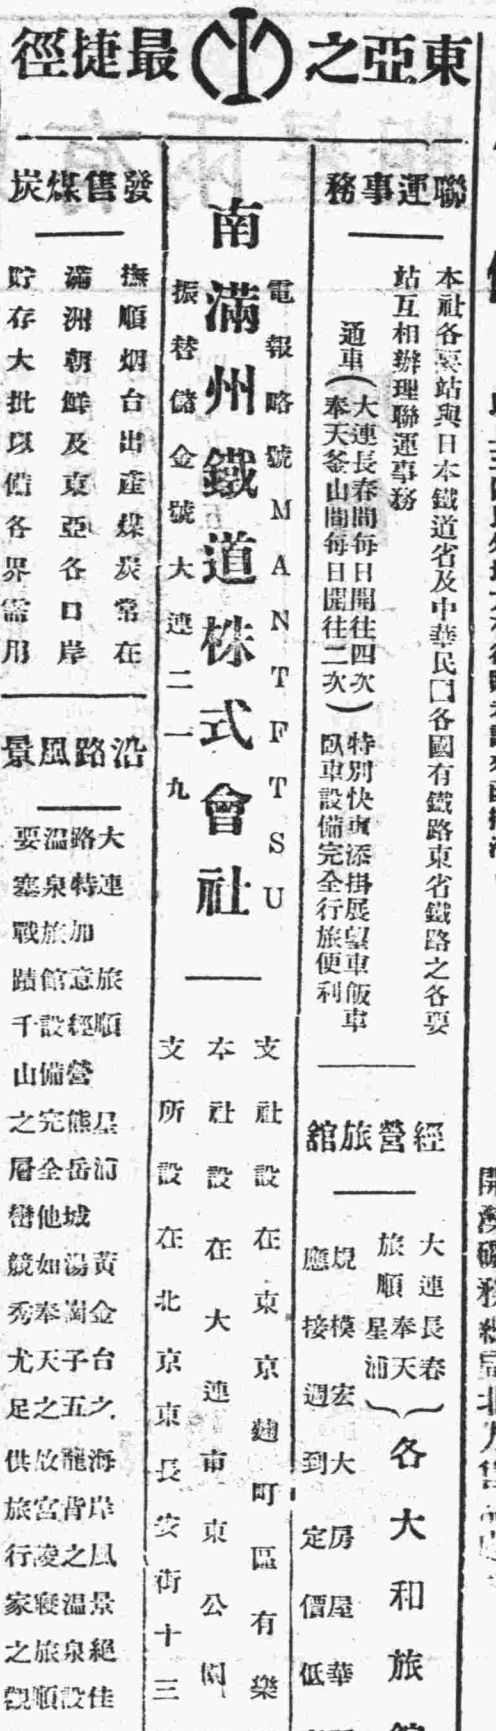 東亞之最捷徑
聯運事務
本社各要站與日本鐵道省及中華民囗各國有鐵路東省鐵路之各要
站互相辦理聯運事務
通車(大連長春間每日開往四次
奉天釜山間每日開往二次)
特別快車添掛展望車飯車
臥車設備完全行旅便利
經營旅館
大連長春
旅順奉天
星浦
各大和旅館
規模宏大房屋華
應接週到定價低
電報略號MANTFTSU
南滿州鐵道株式會社
振替儲金號大連二一九
支社設在東京麹町區有樂
本社設在大連市東公園
支所設在北京東長安街十三
發售煤炭
撫順烟台出產煤炭常在
滿洲朝鮮及東亞各口岸
貯存大批以備各界需用
沿路風景
大連旅順星浦黃金台之海岸風景絕佳
路特加意經營熊岳城湯崗子五龍背之溫泉設
溫泉旅館設備完全他如奉天之故宮凌寢旅順
要塞戰蹟千山之層巒競秀尤足供旅行家之觀